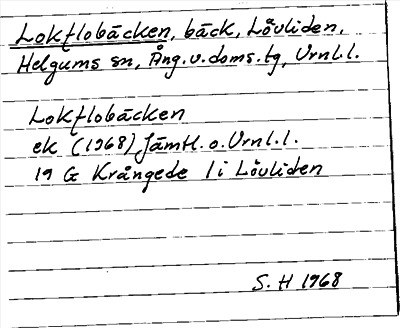 Lokflobäcken, bäck, Lövliden,
Helgums sn, Ång.v.doms.tg, Vrnl.l.
Lokflobäcken
ek (1968) Jämtl. o. Vrnl.l.
19 G Krångede 1 i Lövliden
S.H 1968